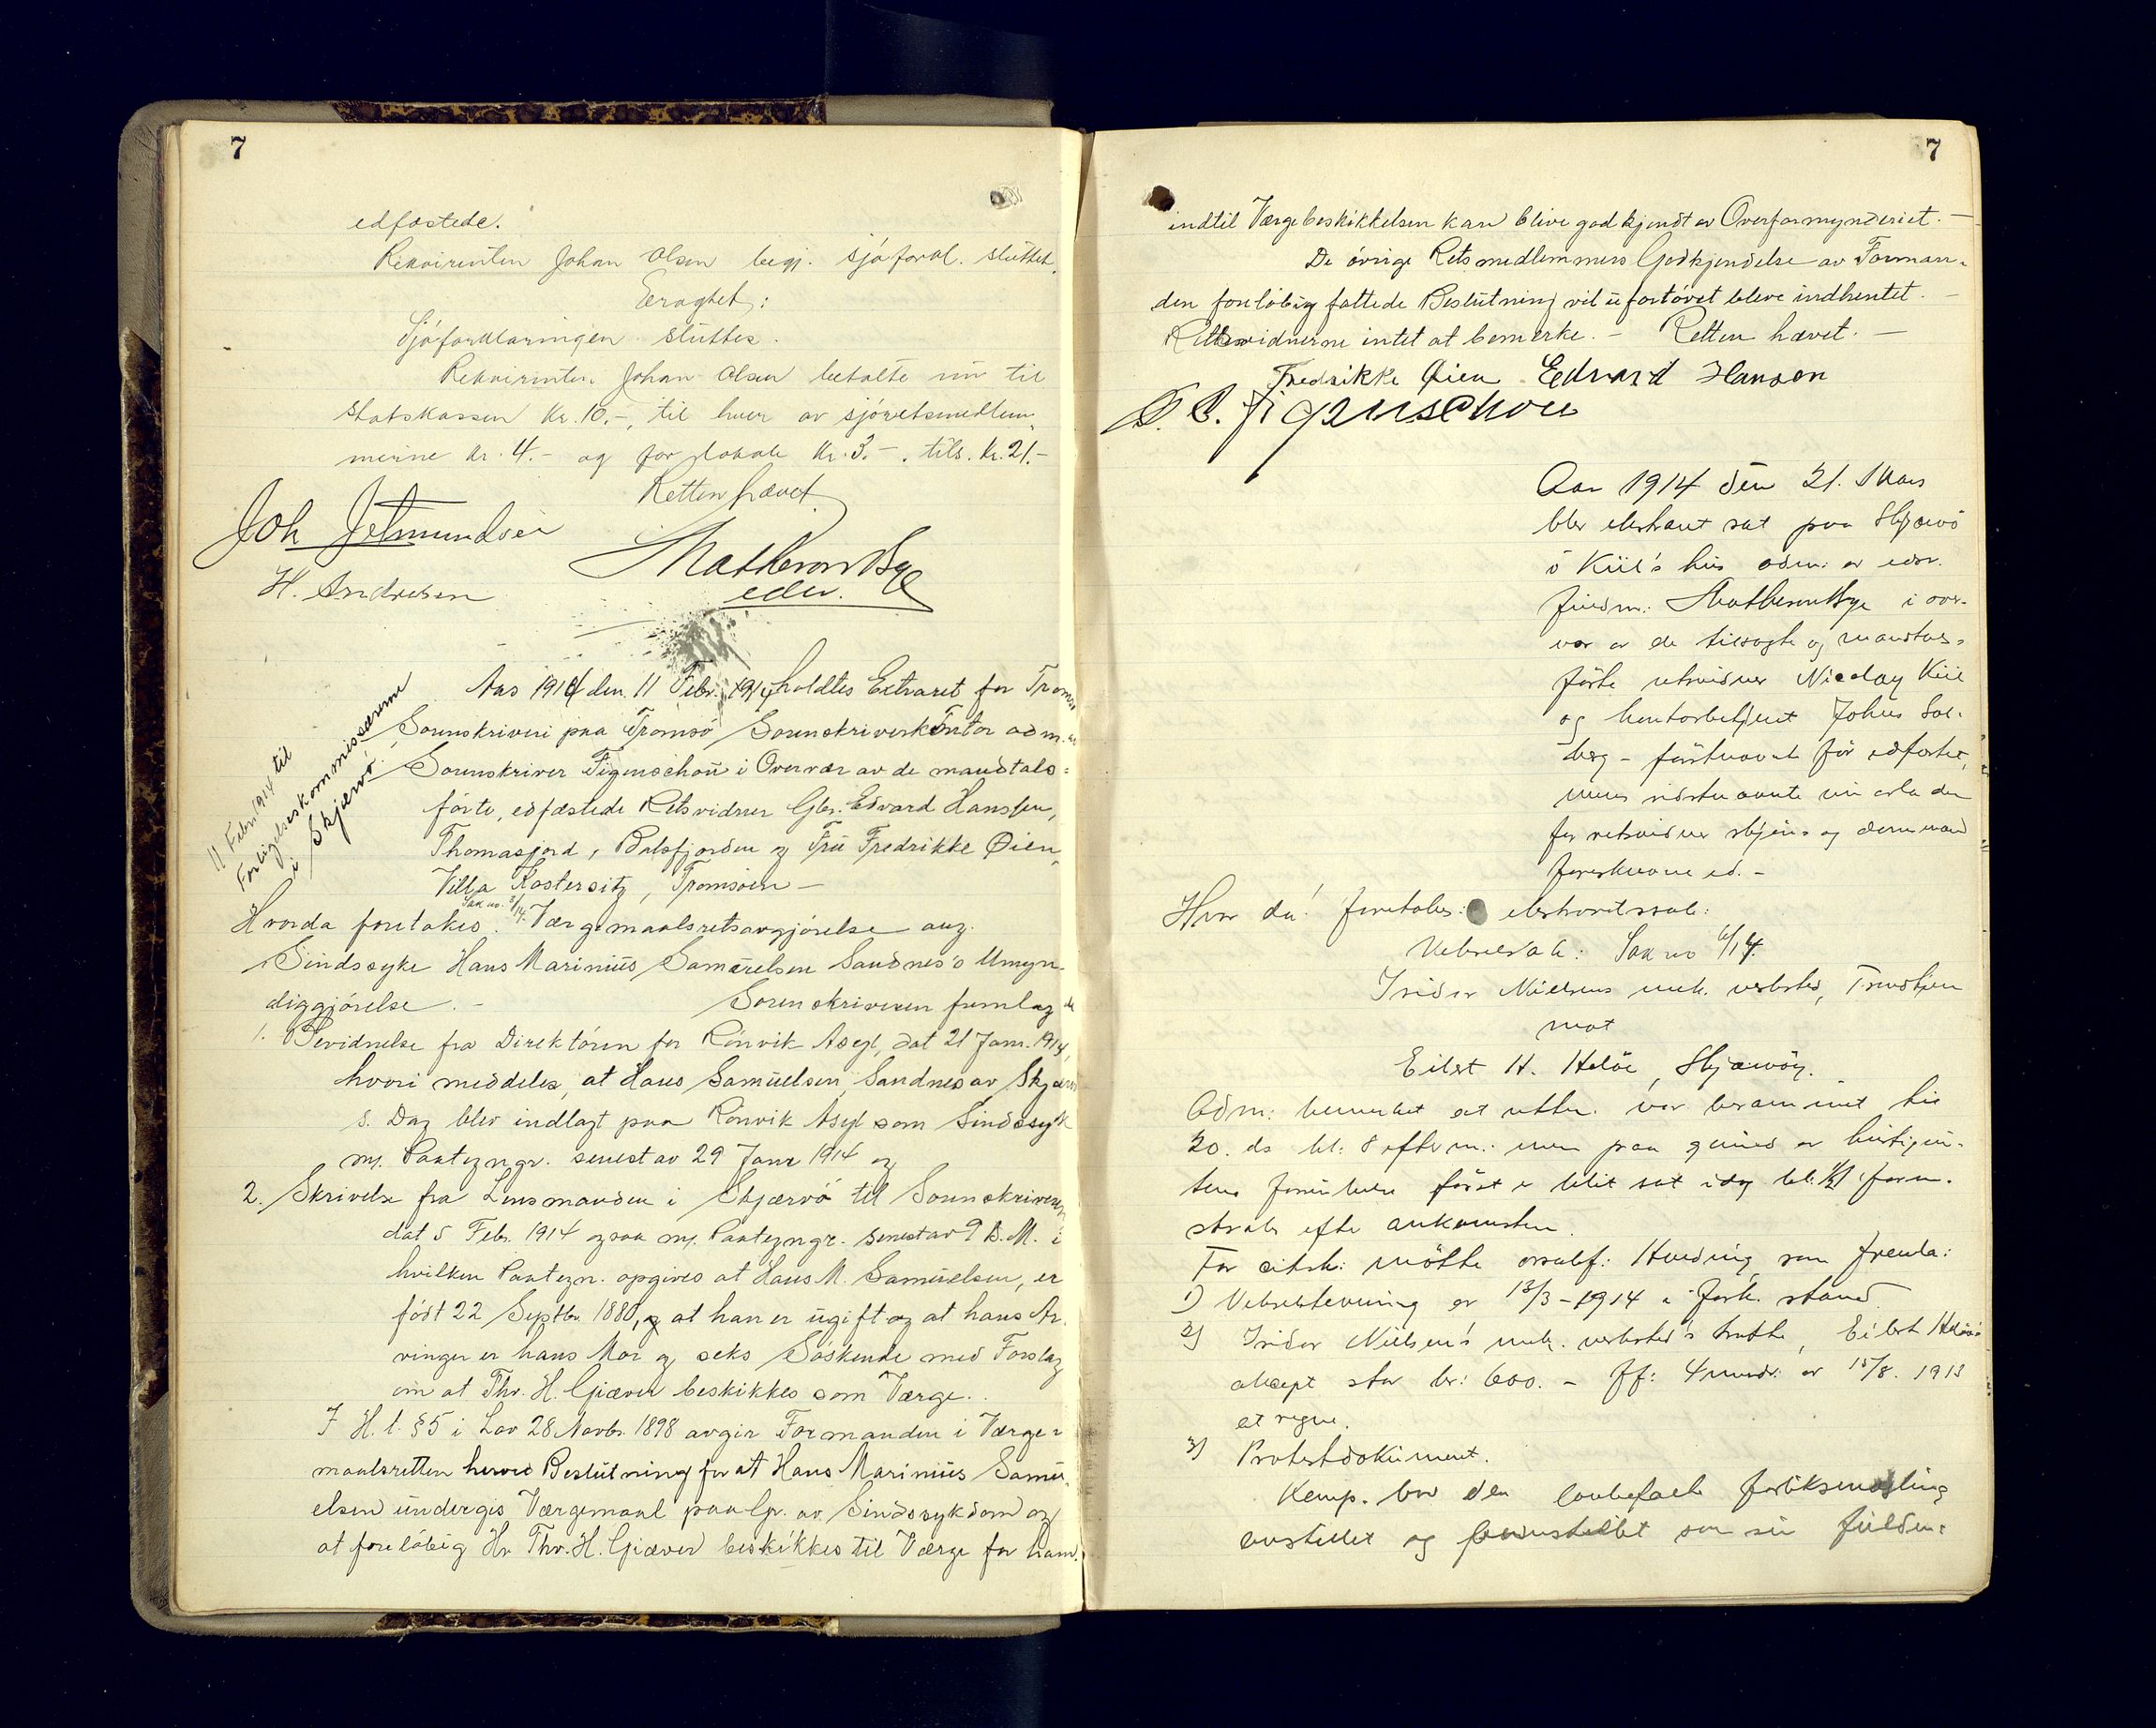 7
edfæstede.
Rekvirenten Johan Olsen begj. sjöforkl. sluttet.
Eragtet:
Sjöforklaringen sluttes.
Rekvirenten Johan Olsen betalte nu til
statskassen kr. 10.-, til hver av sjöretsmedlem-
merne kr. 4.- og for lokale kr. 3.-. tils. kr. 21.-
Retten hævet
Joh
H. Andresen
edsv.
Aar 1914 den 11 Febr. 1914 holdtes Extraret for Tromsø
Sorenskriveri paa Tromsø Sorenskriverkontor adm. av
Sorenskriver Figenschou i Overvær av de mandtals-
förte, edfæstede Retsvidner Gbr. Edvard Hanssen,
Thomasjord, Balsfjorden og Frü Fredrikke Øien,
Villa Kostersitz, Tromsöen –
11 Febr 1914 til
Forligelseskommissærerne
i Skjærvö.
Sak no. 8/14.
Hvorda foretokes: Værgemaalsretsavgjörelse ang.
Sindssyke Hans Marinius Samuelsen Sandnes's Umyn-
diggjörelse. – Sorenskriveren fremlagde
1. Bevidnelse fra Direktören for Rönvik Asyl, dat 21 Janr. 1914,
hvori meddeles, at Hans Samuelsen, Sandnes av Skjærvö
s. Dag blev indlagt paa Rönvik Asyl som Sindssyk
m. Paategngr. senest av 29 Janr 1914 og
2. Skrivelse fra Lensmanden i Skjærvö til Sorenskriveren
dat 5 Febr. 1914 ogsaa m. Paategngr. senest av 9 d. M. i
hvilken Paategn. opgives at Hans M. Samuelsen, er
födt 22 Septbr. 1880, og at han er ugift og at hans Ar-
vinger er hans Mor og seks Söskende med Forslag
om at Thr. H. Giæver beskikkes som Værge.
I H. t. § 5 i Lov 28 Novbr. 1898 avgir Formanden i Værge-
maalsretten herved Beslutning for at Hans Marinius Samu-
elsen undergis Værgemaal paa Gr. av Sindssykdom og
at forelöbig Hr Thr. H. Giæver beskikkes til Værge for ham.
7
indtil Værgebeskikkelsen kan blive godkjendt av Overformynderiet. –
De övrige Retsmedlemmers Godkjendelse av Forman-
den forelöbig fattede Beslutning vil ufortövet blive indhentet. –
Retsvidnerne intet at bemerke. – Retten hævet. –
Fredrikke Øien Edvard Hansen
Figenschou
Aar 1914 den 21. Mars
blev ekstraret sat paa Skjærvö
i Kiil's hus adm: av edsv.
fuldm: i over-
vær av de tilsagte og mandtals-
förte retsvidner Nicolay Kiil
og Johus Sol-
berg – förstnævnte för edfæstet,
mens sidstnævnte nu avla den
for retsvidner og
foreskrevne ed. –
Hvor da foretokes: ekstraretssak:
Vekselsak: Sak no 6/14.
Isidor Nielsens mek. verksted, Trondhjem
mot
Eilert H. Helöe, Skjærvöy.
Adm: bemerket at retten var berammet til
20. ds kl: 8 efterm: men paa grund av hurtigru-
tens forsinkelse först er blit sat idag kl. 1/2 1 form.
straks efter ankomsten.
For citsk: mötte som fremla:
1) Vekselstevning av 13/3-1914 i fork. stand
2) Isidor Nielsen's mek. verksted's tratte, Eilert Helöe's
aksept stor kr: 600. – ff: 4 mndr. av 15/8. 1913
at regne.
3) Protestdokument.
Komp. bad den lovbefalte forliksmegling
anstillet og som nu fuldm: